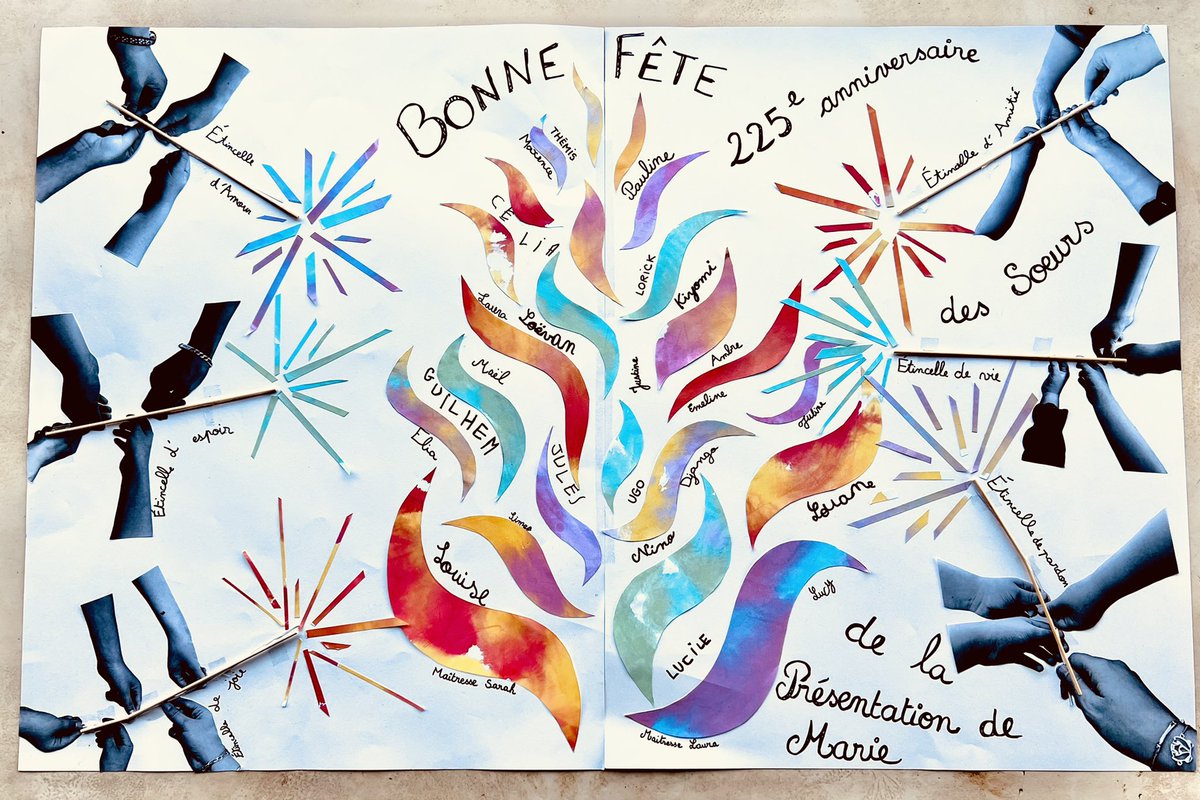 BONNE FÊTE
225e anniversaire
des Soeurs
de la
Présentation de
Marie
Étincelle
d'Amour
Étincelle d'espoir
Étincelle de joie
Étincelle d'Amitié
Étincelle de vie
Étincelle de pardon
THEMIS
Maxence
Pauline
CELIA
LORICK
Kiyomi
Laura
Loëvan
Maël
GUILHEM
Elia
JULES
Justine
Ambre
Emeline
UGO
Django
Louane
Nino
Louise
Maîtresse Sarah
LUCILE
Lucy
Maîtresse Laura